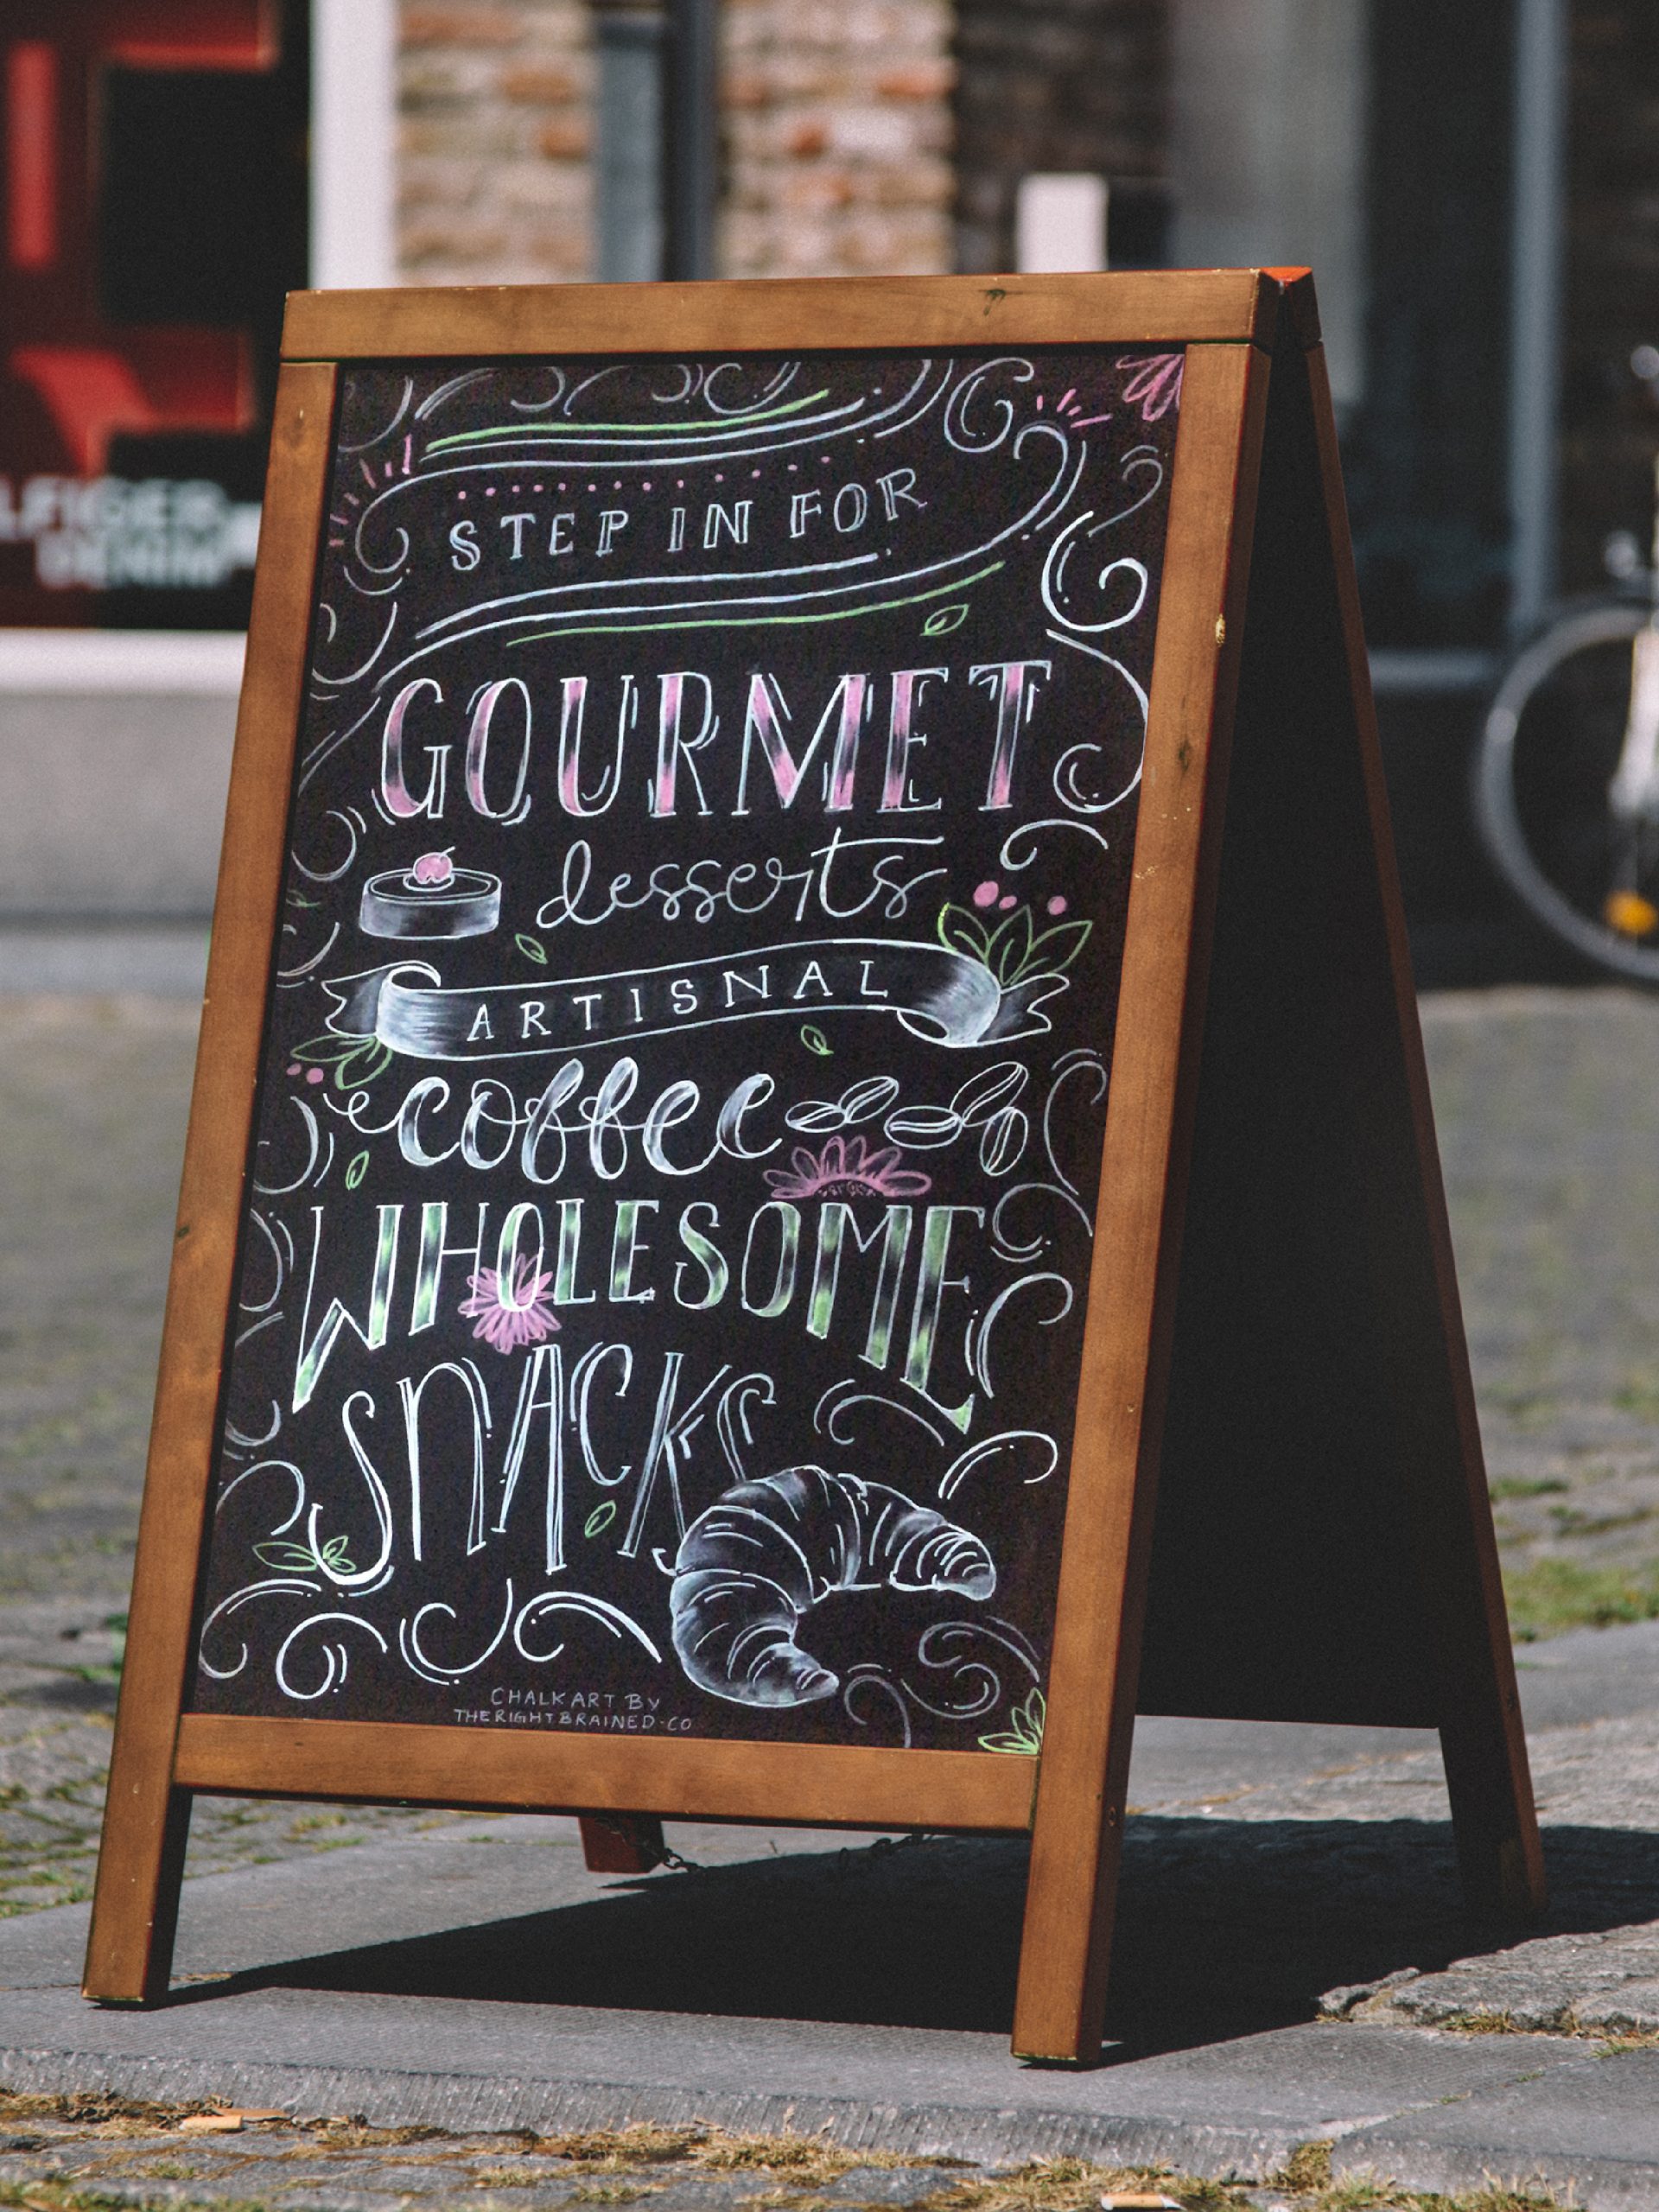 STEP IN FOR
GOURMET
desserts
ARTISNAL
coffee
WHOLESOME
SNACKS
CHALKART BY
THERIGHTBRAINED.CO
DENIM